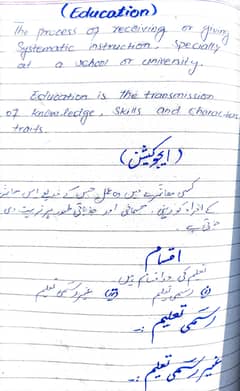 (Education)
The process of receiving or giving
Systematic instruction, specially
at a school or university.
Education is the transmission
of knowledge, skills and character
traits.
(ایجوکیشن)
کسی معاشرے میں وہ عمل جس کے ذریعے اس معاشرے
کے افراد کو ذہنی، جسمانی اور جذباتی طور پر تربیت دی
جاتی ہے
اقسام
تعلیم کی دو اقسام ہیں
(i) رسمی تعلیم (ii) غیر رسمی تعلیم
رسمی تعلیم :-
غیر رسمی تعلیم :-